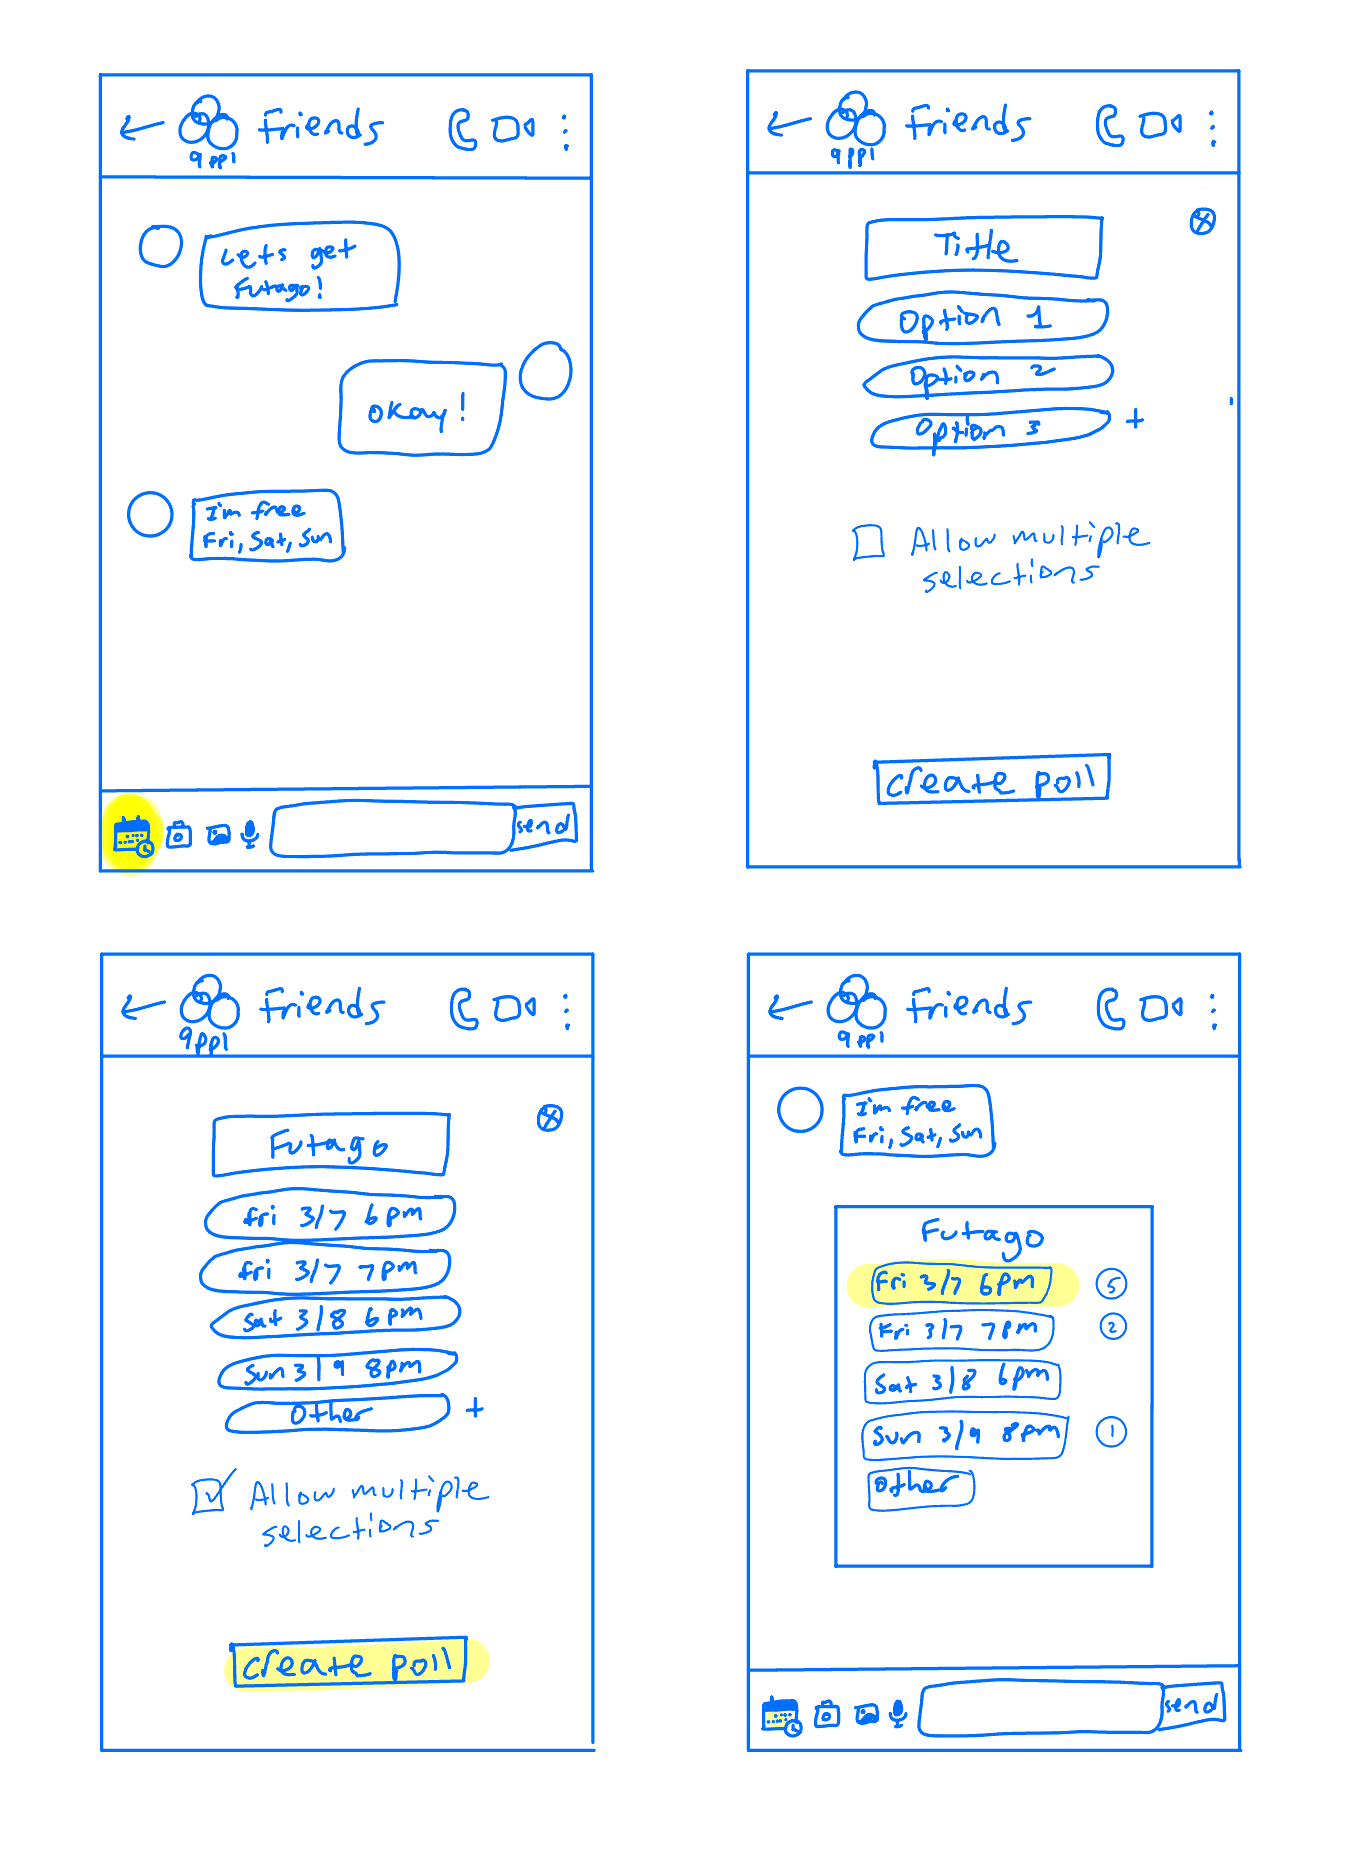 Friends
9 ppl
Lets get
Futago!
Okay!
I'm free
Fri, Sat, Sun
send
Friends
9 ppl
Title
Option 1
Option 2
Option 3 +
Allow multiple
selections
create poll
Friends
9 ppl
Futago
fri 3/7 6pm
fri 3/7 7pm
Sat 3/8 6pm
Sun 3/9 8pm
Other +
Allow multiple
selections
create poll
Friends
9 ppl
I'm free
Fri, Sat, Sun
Futago
Fri 3/7 6pm 5
Fri 3/7 7pm 2
Sat 3/8 6pm
Sun 3/9 8pm 1
Other
send